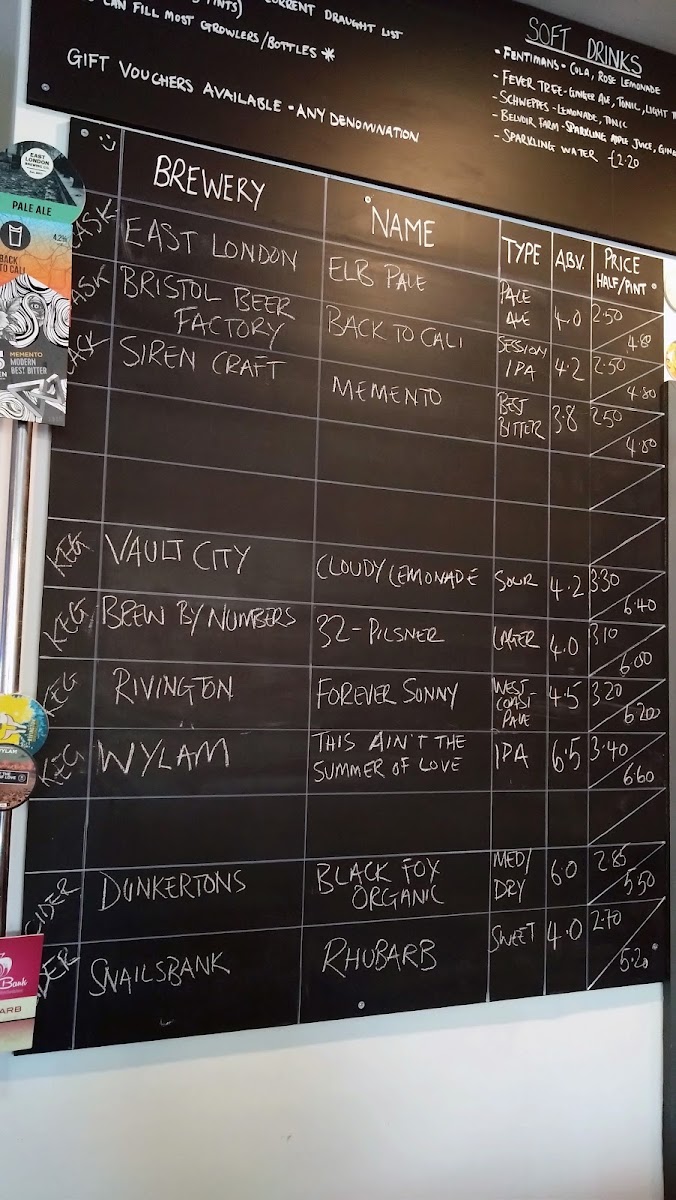 CURRENT DRAUGHT LIST
CAN FILL MOST GROWLERS/BOTTLES *
GIFT VOUCHERS AVAILABLE • ANY DENOMINATION
SOFT DRINKS
• FENTIMANS • COLA, ROSE LEMONADE
- FEVER TREE - GINGER ALE, TONIC, LIGHT
- SCHWEPPES - LEMONADE, TONIC
- BELVOIR FARM - SPARKLING APPLE JUICE,
- SPARKLING WATER - £2.20
BREWERY NAME TYPE ABV. PRICE HALF/PINT
CASK EAST LONDON ELB PALE PALE ALE 4.0 2.50 4.80
CASK BRISTOL BEER FACTORY BACK TO CALI SESSION IPA 4.2 2.50 4.80
CASK SIREN CRAFT MEMENTO BEST BITTER 3.8 2.50 4.80
KEG VAULT CITY CLOUDY LEMONADE SOUR 4.2 3.30 6.40
KEG BREW BY NUMBERS 32-PILSNER LAGER 4.0 3.10 6.00
KEG RIVINGTON FOREVER SONNY WEST COAST PALE 4.5 3.20 6.20
KEG WYLAM THIS AIN'T THE SUMMER OF LOVE IPA 6.5 3.40 6.60
CIDER DUNKERTONS BLACK FOX ORGANIC MED/DRY 6.0 2.85 5.50
SNAILSBANK RHUBARB SWEET 4.0 2.70 5.20
EAST LONDON
PALE ALE
4.2%
BACK
TO CALI
MEMENTO
MODERN
BEST BITTER
Bank